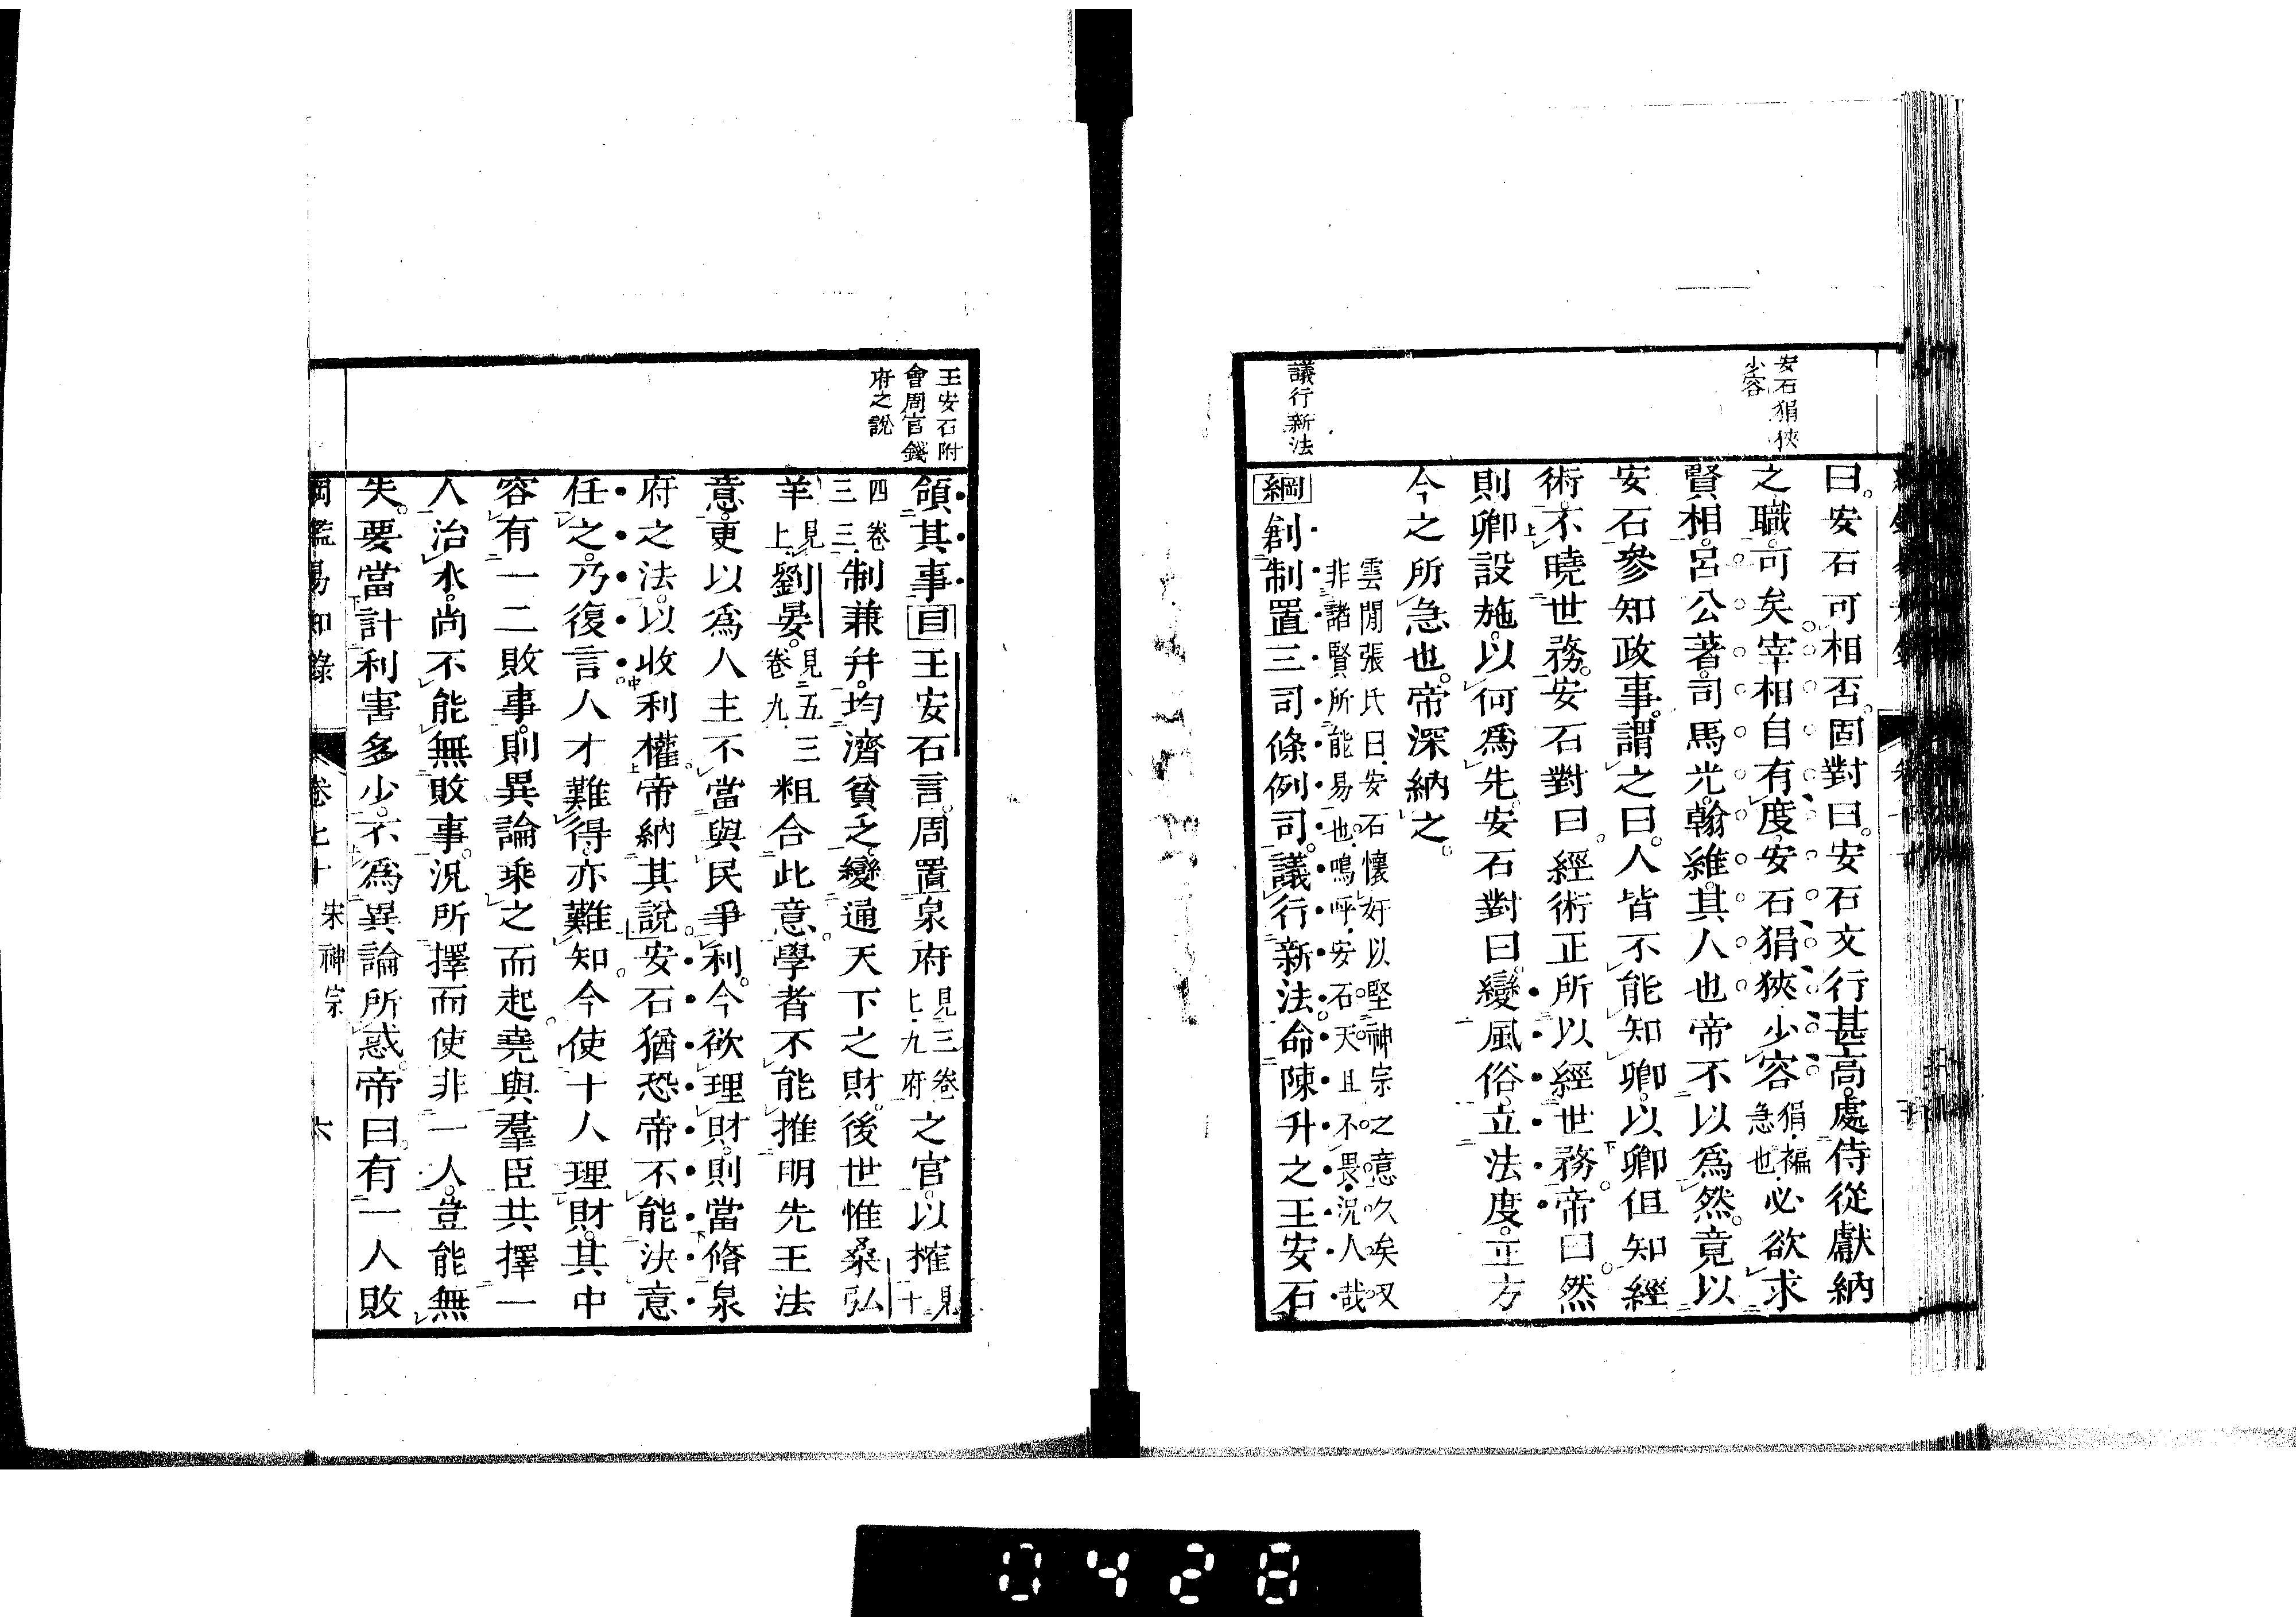 安石狷狹
少容
曰安石可相否固對曰安石文行甚高處侍從獻納
之職可矣宰相自有度安石狷狹少容狷褊急也必欲求
賢相呂公著司馬光韓維其人也帝不以爲然竟以
安石參知政事謂之曰人皆不能知卿以卿但知經
術不曉世務安石對曰經術正所以經世務帝曰然
則卿設施以何爲先安石對曰變風俗立法度正方
今之所急也帝深納之
雲閒張氏曰安石懷奸以堅神宗之意久矣又
非諸賢所能易也嗚呼安石天且不畏況人哉
議行新法
綱創制置三司條例司議行新法命陳升之王安石
王安石附
會周官錢
府之說
領其事目王安石言周置泉府見三卷七九府之官以搉見十
四卷三三制兼并均濟貧乏變通天下之財後世惟桑弘
羊見上劉晏見五三卷九粗合此意學者不能推明先王法
意更以爲人主不當與民爭利今欲理財則當脩泉
府之法以收利權帝納其說安石猶恐帝不能決意
任之乃復言人才難得亦難知今使十人理財其中
容有一二敗事則異論乘之而起堯與羣臣共擇一
人治水尚不能無敗事況所擇而使非一人豈能無
失要當計利害多少不爲異論所惑帝曰有一人敗
綱鑑易知錄 卷七十 宋神宗 六
0428